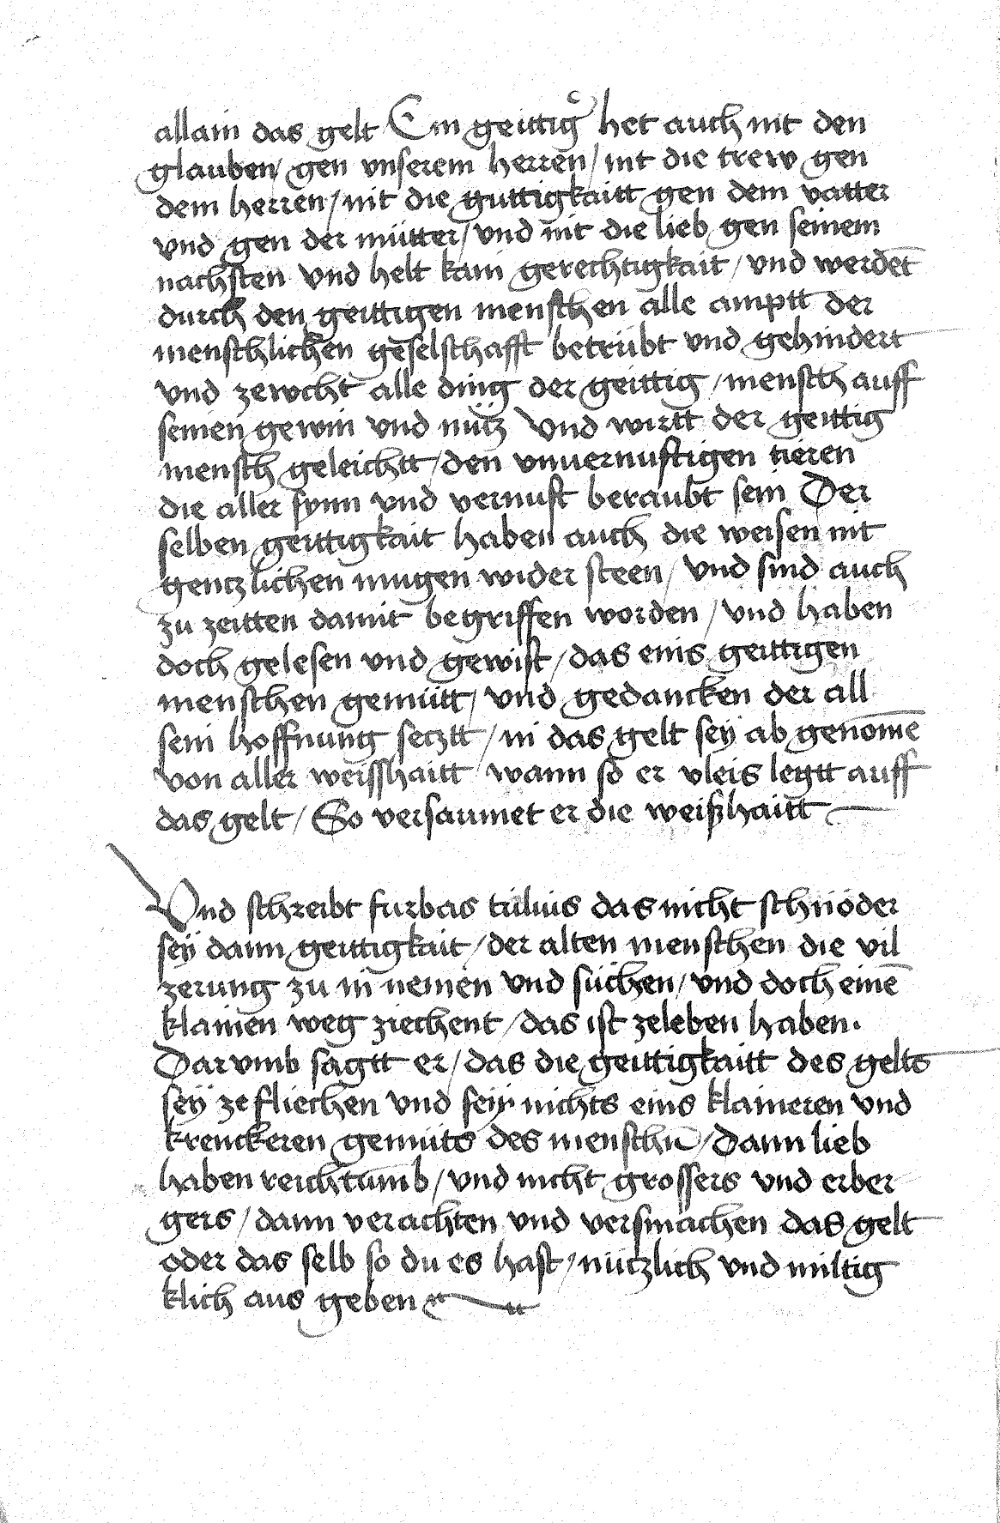 allain das gelt Ein geittig͛ het auch nit den
glauben / gen vnserem herren / nit die trew gen
dem herren / nit die guttigkaitt gen dem vatter
vnd gen der mütter / vnd nit die lieb gen seinem
nachsten vnd helt kain gerechtigkait / vnd werdēt
durch den geittigen menschen alle amptt der
menschlichen geselschafft betrübt vnd gehindert
vnd zewcht alle ding der geittig / mensch auff
seinen gewin vnd nücz Vnd wirtt der geittig
mensch geleichtt / den vnuernuftigen tieren
die aller synn vnd vernuft beraubt sein Der
selben geittigkait haben auch die weisen nit
genczlichen mugen wider steen / vnd sind auch
zu zeitten damit begriffen worden / vnd haben
doch gelesen vnd gewist / das einis geittigen
menschen gemütt / vnd gedancken der all
sein hoffnung secztt / in das gelt sey ab genōme
von aller weisshaitt / wann so er vleis legtt auff
das gelt / So versaumet er die weißhaitt
Vnd schreibt furbas tulius das nicht schnöder
seÿ dann geittigkait / der alten menschen die vil
zerung zu in nemen vnd süchen / vnd doch einē
klainen weg ziechent / das ist zeleben haben.
Dar vmb sagtt er / das die geittigkaitt des gelts
seÿ ze fliechen vnd seÿ nichts eins klaineren vnd
krenckeren gemüts des menschn̄ / Dann lieb
haben reichtumb / vnd nicht grossers vnd erber
gers / dann verachten vnd versmachen das gelt
oder das selb so du es hast / nüczlich vnd miltig
klich aus geben